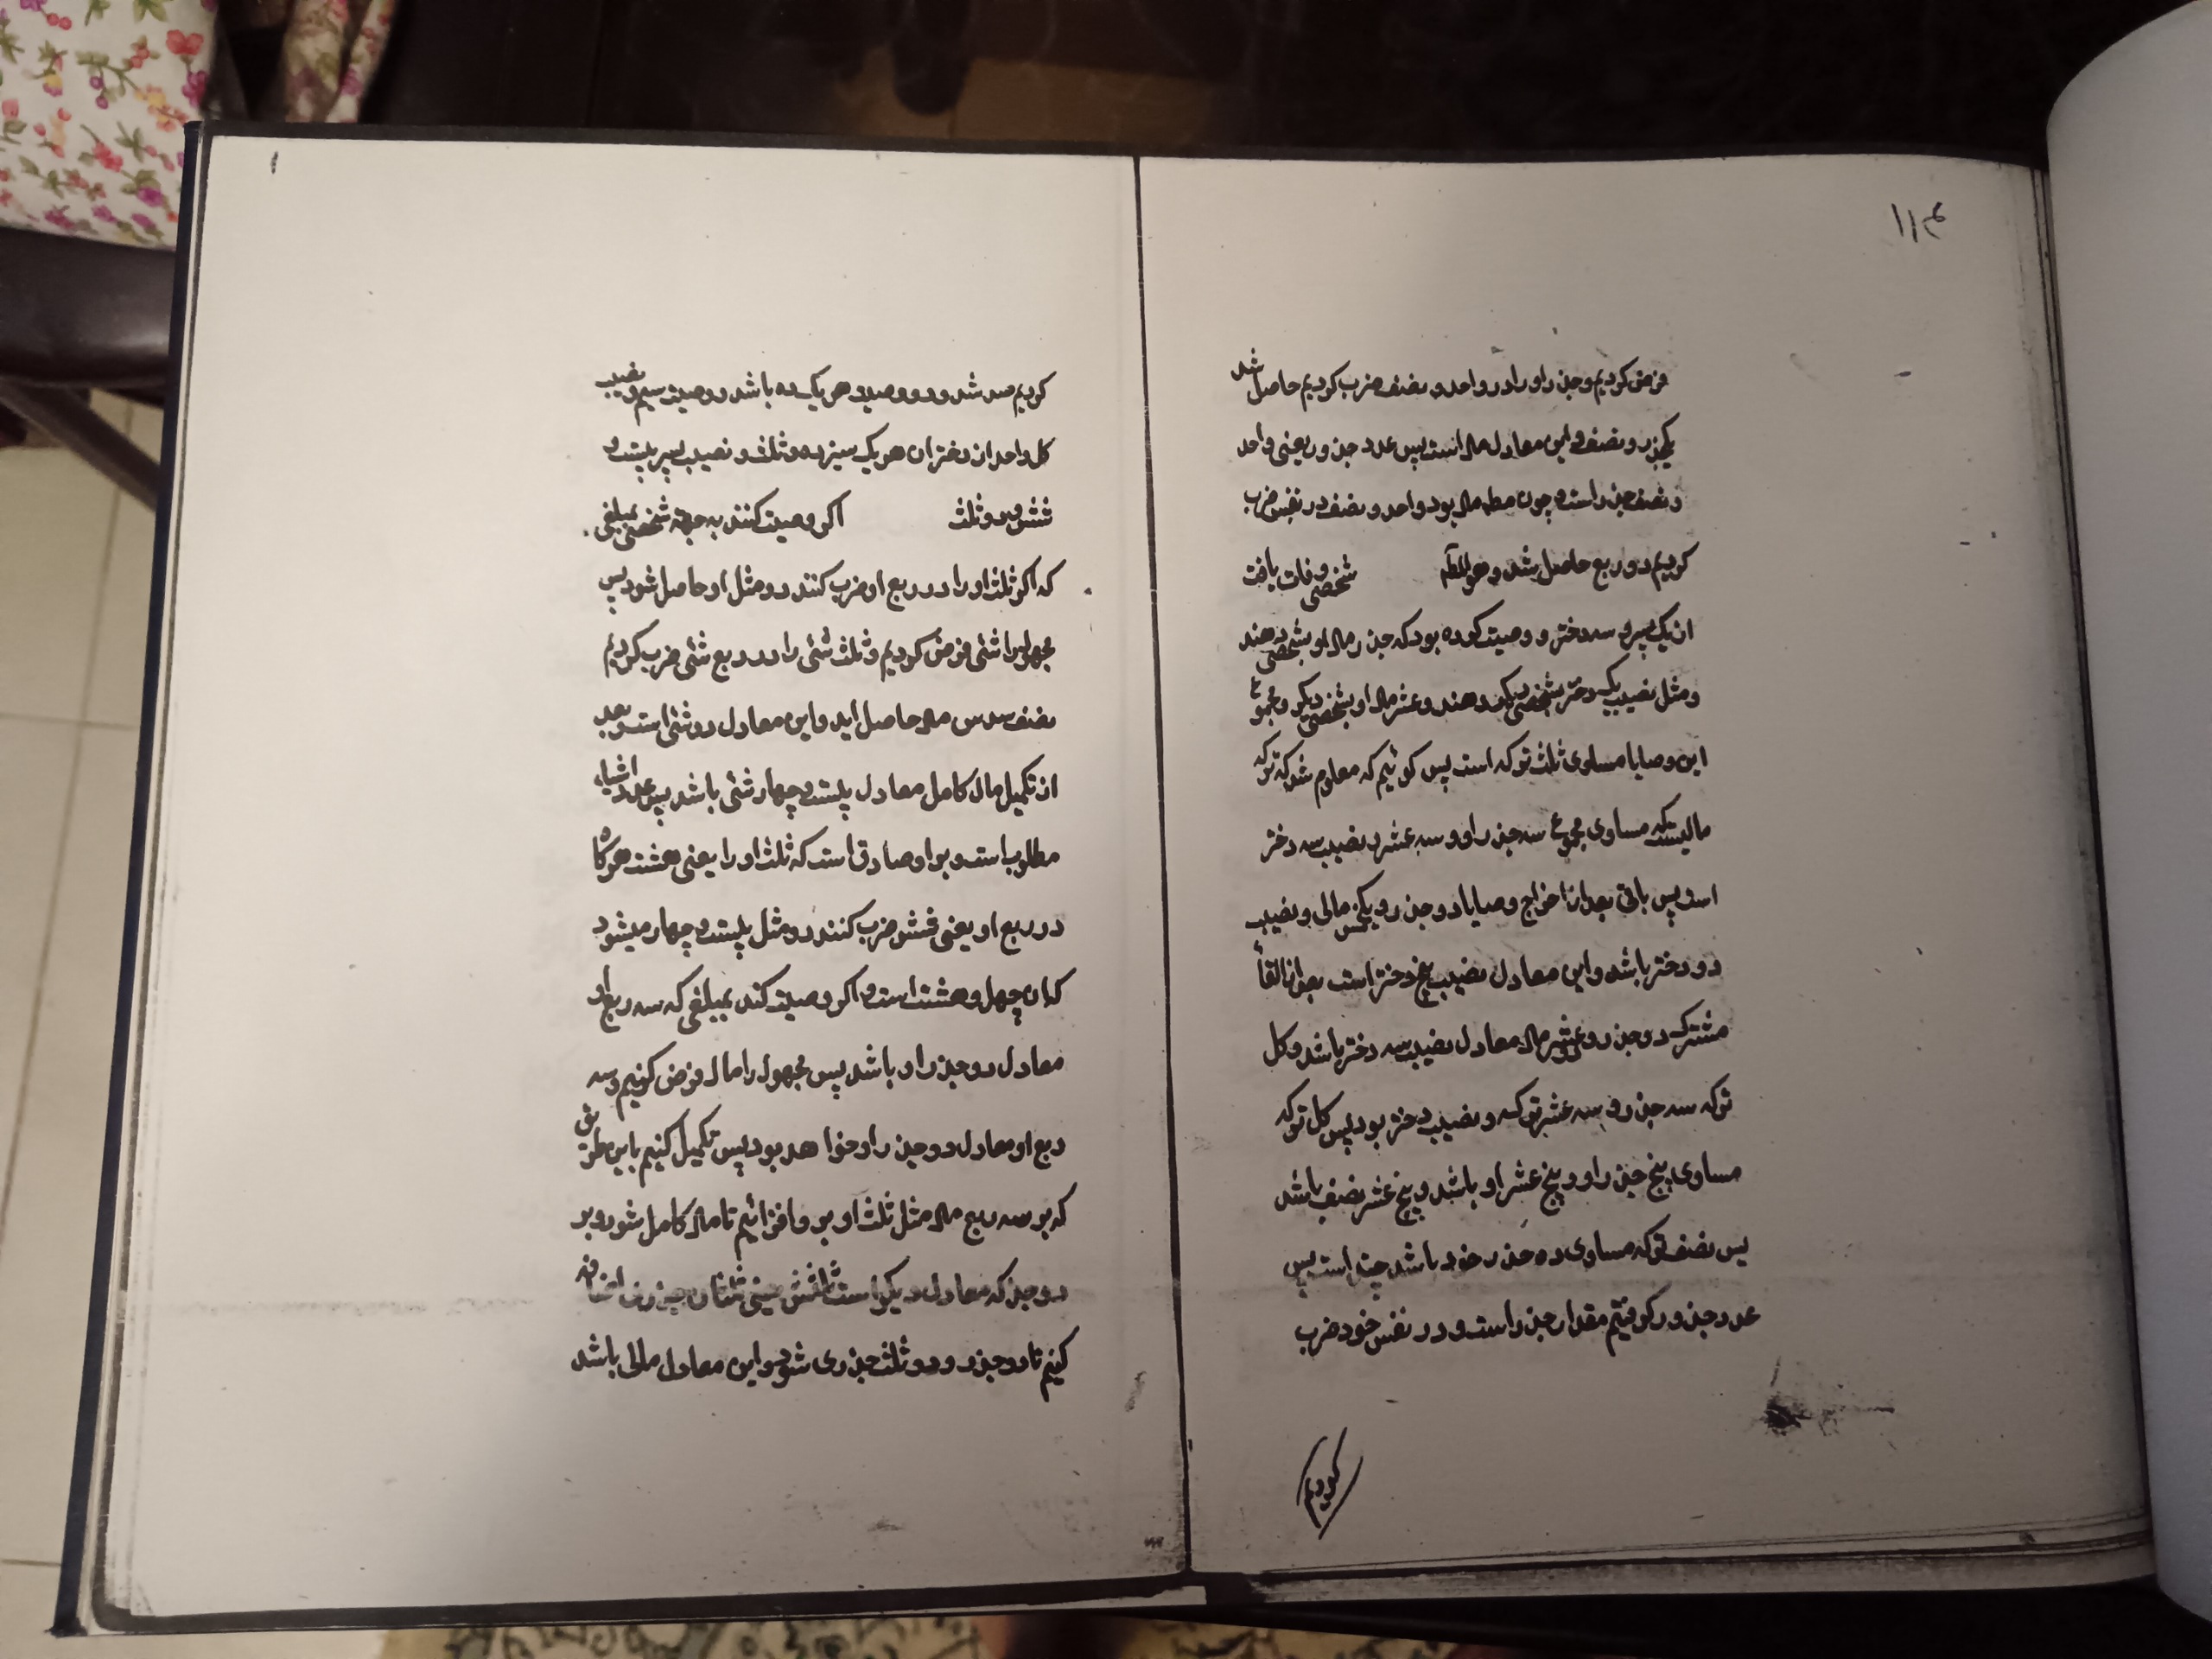 ۱۱۴
فرض کردیم و جذر او را در واحد و نصف ضرب کردیم حاصل شد
یکجذر و نصف و این معادل مال است پس عدد جذور یعنی واحد
و نصف جذر است و چون مطـ مال بود واحد و نصف در نفس ضرب
کردیم دو ربع حاصل شد و هو المطـ شخصی وفات یافت
از یک پسر و سه دختر و وصیت کرده بود که جذر مال او بشخصی دهند
و مثل نصیب یک دختر بشخصی دیکر دهند و عشر مال او بشخصی دیکر و مجموع
این وصایا مساوی ثلث ترکه است پس کوئیم که معلوم شد که ترکه
مالیستکه مساوی مجموع سه جذر او و سه عشر و نصیب سه دختر
است پس باقی بعد از اخراج وصایا دو جذر و یکخمس مالی و نصیب
دو دختر باشد و این معادل نصیب پنج دختر است بعد از القاء
مشترک دو جذر و دو عشر مال معادل نصیب سه دختر باشد و کل
ترکه سه جذر و سه عشر ترکه و نصیب دختر بود پس کل ترکه
مساوی پنج جذر او و پنج عشر او باشد و پنج عشر نصف باشد
پس نصف ترکه مساوی ده جذر خود باشد چند است پس
عدد جذور کرفتیم مقدار جذر است و در نفس خود ضرب
کردیم
کردیم صد شد و دو وصیت هر یک ده باشد و وصیت سیم و نصیب
کل واحد از دختران هر یک سیزده و ثلث و نصیب پسر بیست و
شش و دو ثلث اکر وصیت کنند به جهة شخصی بمبلغی
که اکر ثلث او را در ربع او ضرب کنند دو مثل او حاصل شود پس
مجهول را شئی فرض کردیم و ثلث شئی را در ربع شئی ضرب کردیم
نصف سدس مال حاصل اید و این معادل دو شئی است و بعد
از تکمیل مال کامل معادل بیست و چهار شئی باشد پس عدد اشیاء
مطلوب است و بر او صادق است که ثلث او را یعنی هشت هرکاه
در ربع او یعنی شش ضرب کنند دو مثل بیست و چهار میشود
که ان چهل و هشت است و اکر وصیت کند بمبلغی که سه ربع او
معادل دو جذر او باشد پس مجهول را مال فرض کنیم و سه
ربع او معادل دو جذر او خواهد بود پس تکمیل کنیم باین طریق
که بر سه ربع مال مثل ثلث او بر وافزائیم تا مال کامل شود و بر
دو جذر که معادل دیکر است
کنیم تا دو جذر و دو ثلث جذری شود و این معادل مالی باشد